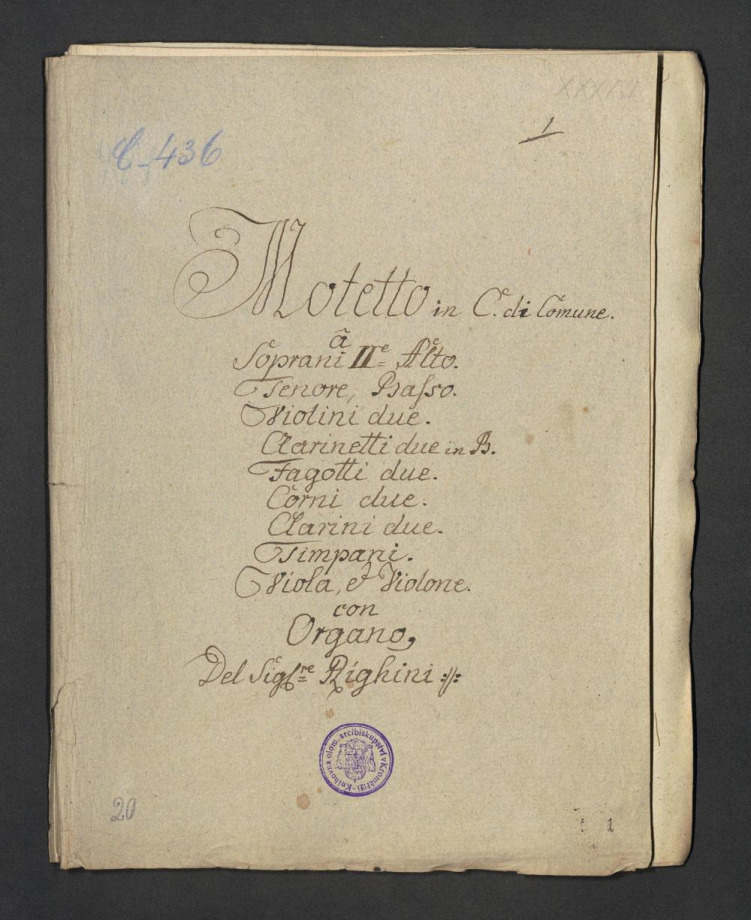 XXXVI
1
C-436
Motetto in C. di Comune.
â
Soprani II.e Alto.
Tenore, Baſso.
Violini due.
Clarinetti due in B.
Fagotti due.
Corni due.
Clarini due.
Timpani.
Viola, et Violone.
con
Organo,
Del Sig.re Righini :||:
Knihovna olom. arcibiskupství v Kroměříži
20
1